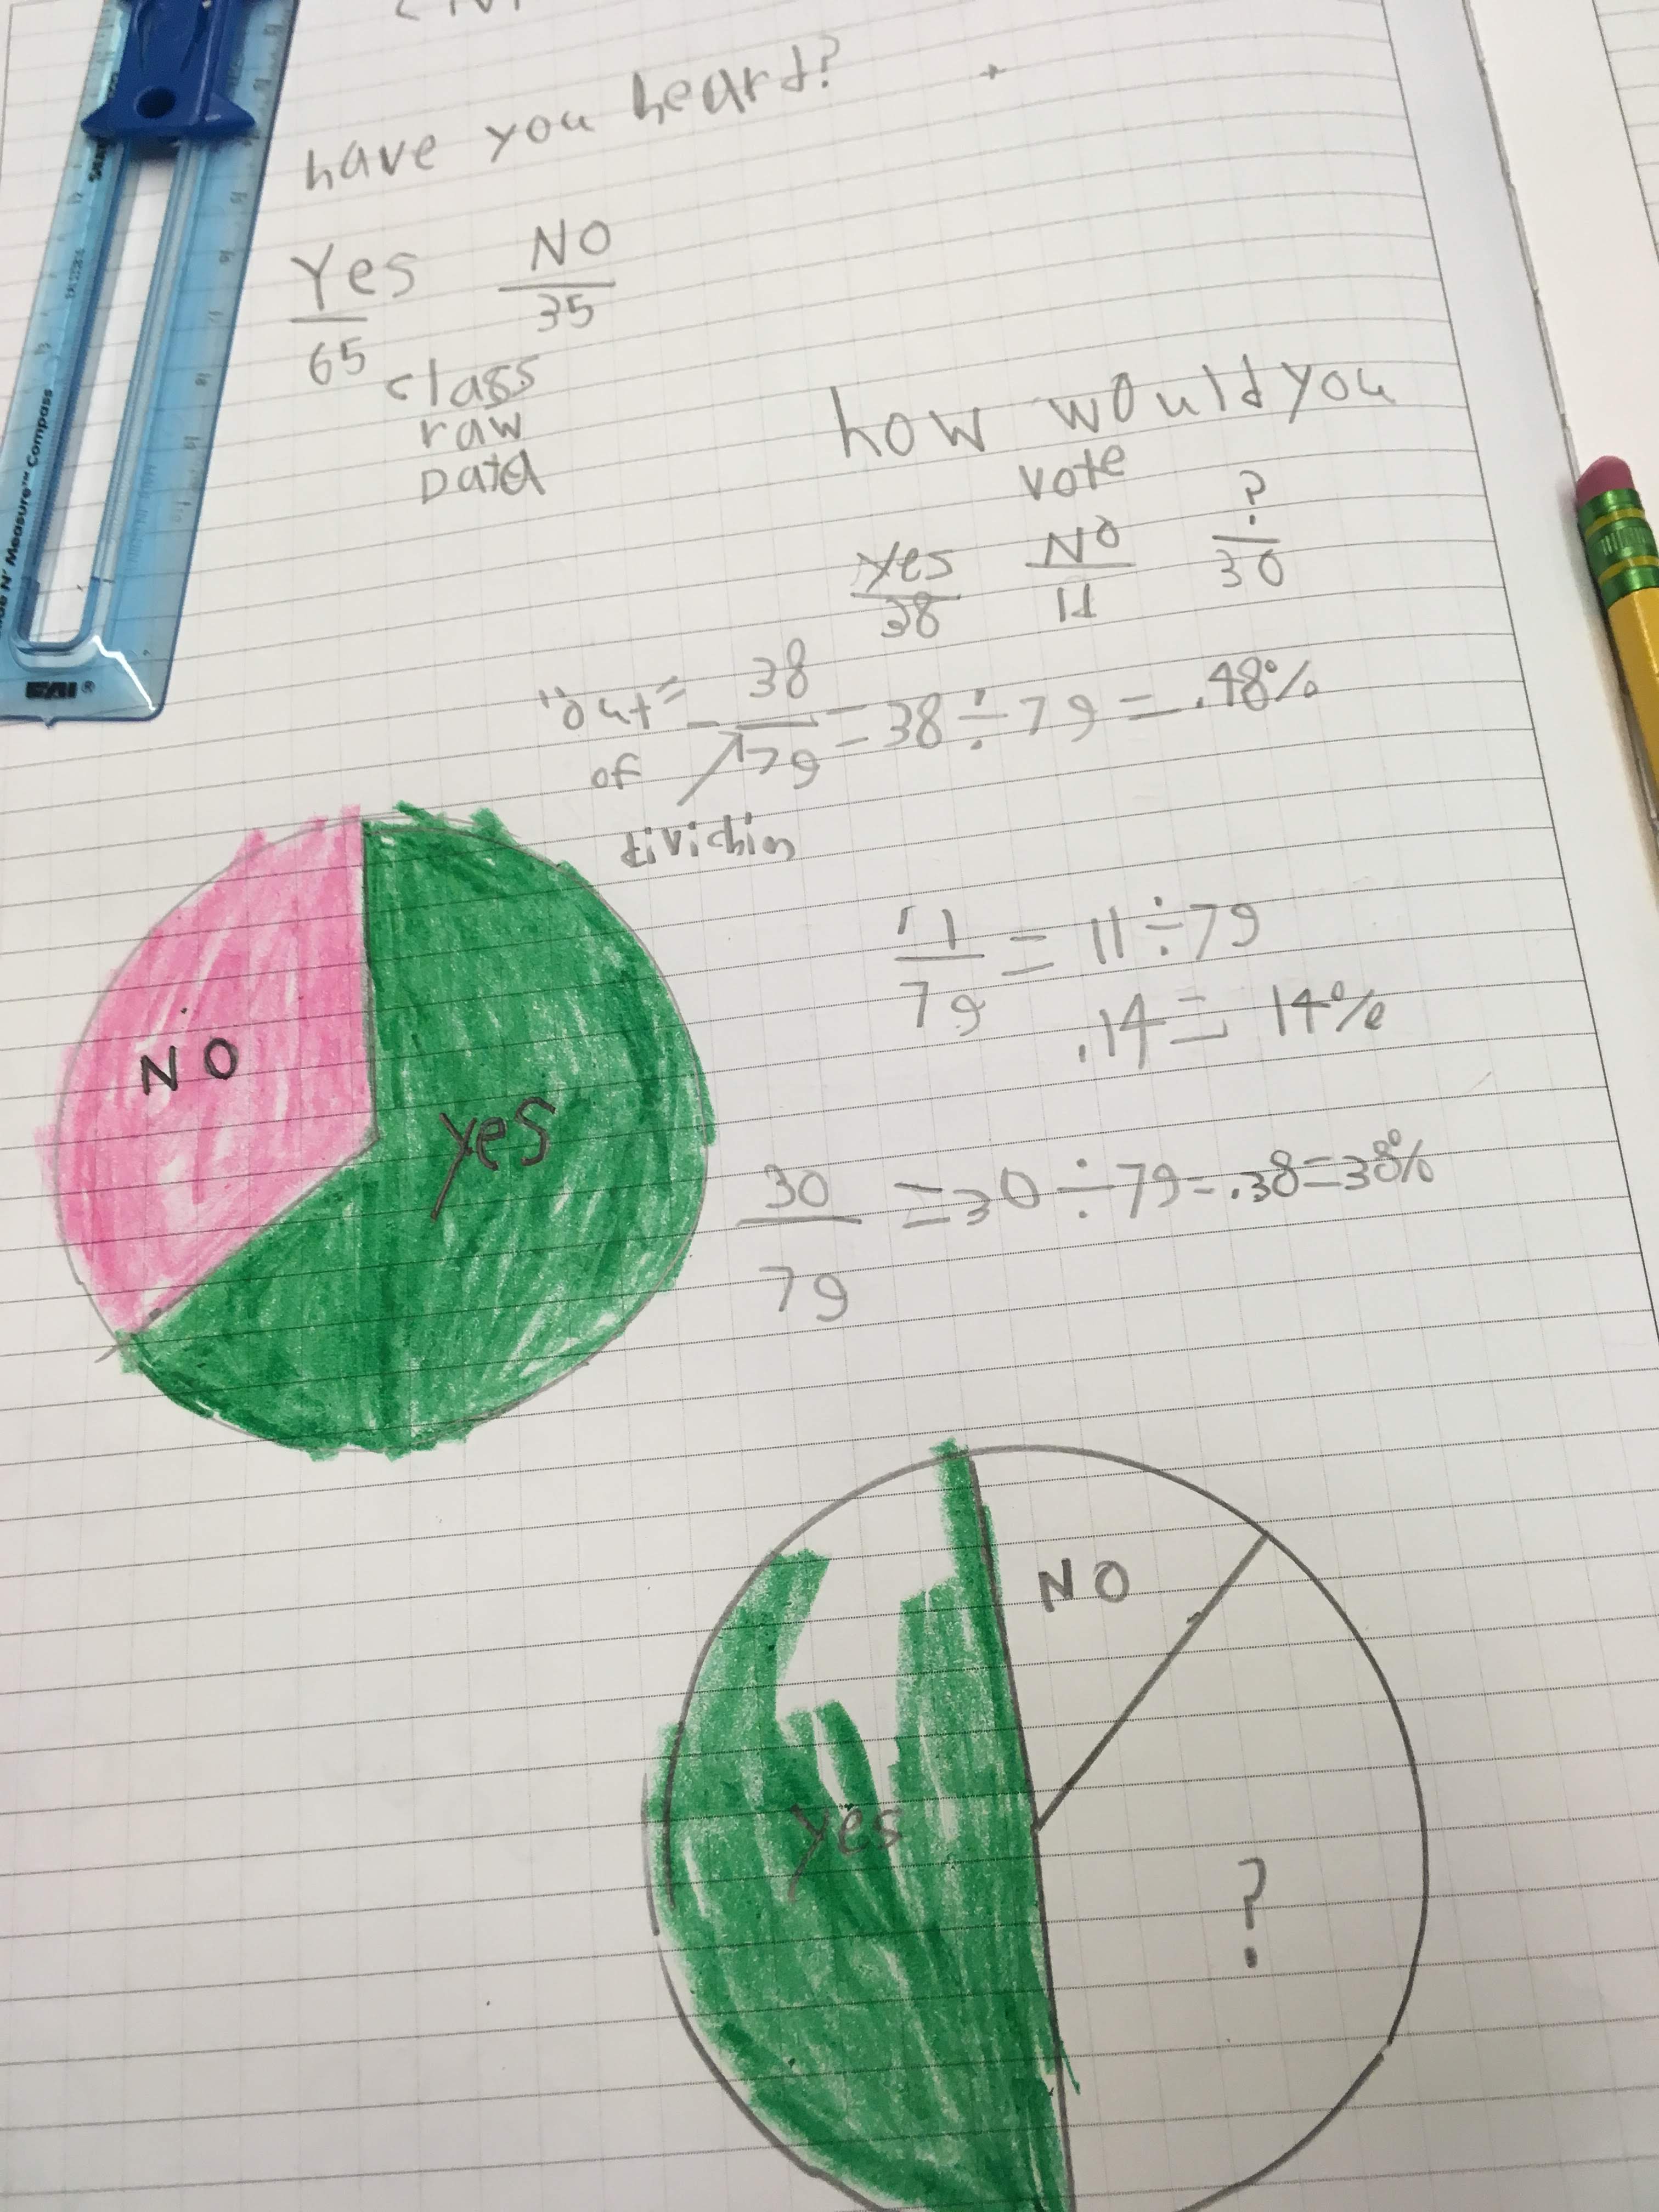 have you heard?
Yes NO
65 35
class
raw
Data
how would you
vote
Yes NO ?
38 11 30
"out" 38 = 38 ÷ 79 = .48%
of 79
11 = 11 ÷ 79
79 .14 = 14%
30 = 30 ÷ 79 = .38 = 38%
79
NO
yes
NO
yes
?
N' Measure™ Compass
EAI®